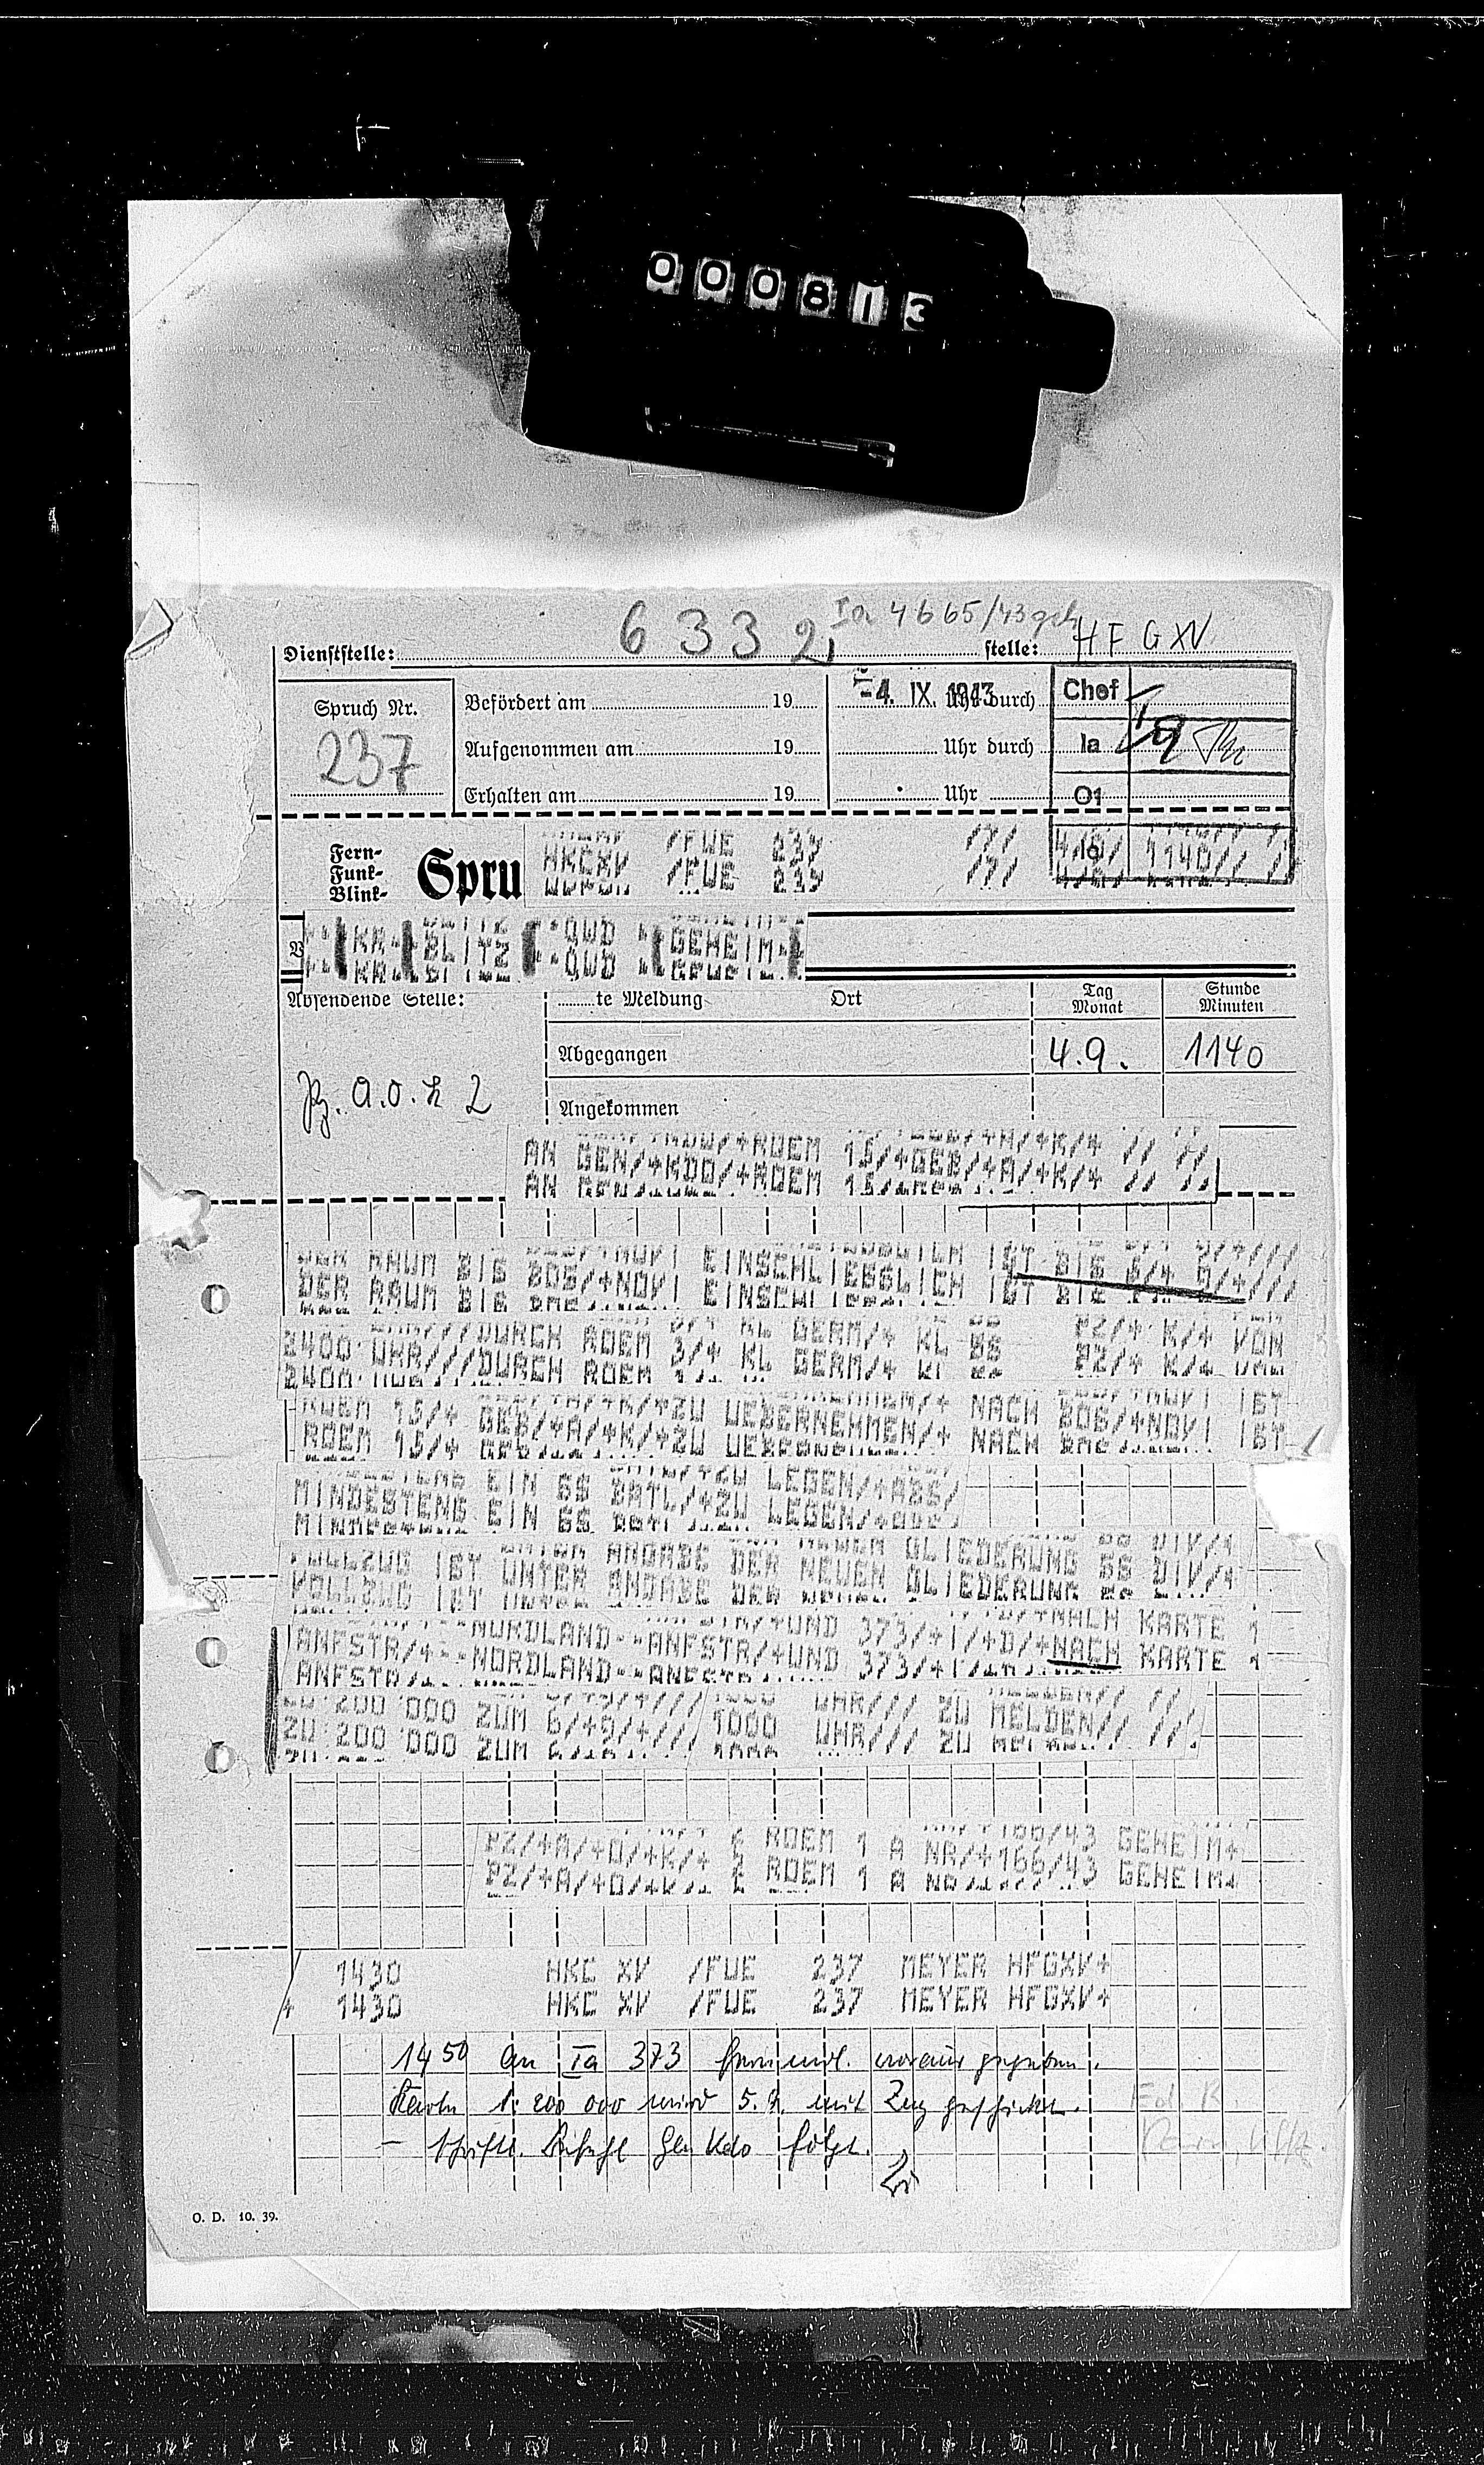 000813
6332, Ia 4665/43 geh
Dienststelle: stelle: HFGXV
Spruch Nr. 237
Befördert am 19 -4. IX. 1943 Uhr durch
Aufgenommen am 19 Uhr durch
Erhalten am 19 Uhr
Chef
Ia
O1
Ic
Fern-
Funk-
Blink-
Spru
HKCXV /FUE 237 /// 4/9/ 1140//
KR BLITZ QWD GEHEIM
Absendende Stelle:
te Meldung Ort Tag Monat Stunde Minuten
Abgegangen 4.9. 1140
Pz. A.O.K 2
Angekommen
AN GEN/+KDO/+ROEM 15/+GEB/+A/+K/+ // //
DER RAUM BIS BOS/+NOVI EINSCHLIESSLICH IST BIS 5/+ 9/+///
2400 UHR///DURCH ROEM 3/+ KL GERM/+ KL SS PZ/+ K/+ VON
ROEM 15/+ GEB/+A/+K/+ZU UEBERNEHMEN/+ NACH BOS/+NOVI IST
MINDESTENS EIN SS BATL/+ZU LEGEN/+ABS/
VOLLZUG IST UNTER ANGABE DER NEUEN GLIEDERUNG SS DIV/+
ANFSTR/+--NORDLAND--ANFSTR/+UND 373/+I/+D/+NACH KARTE 1
ZU 200 000 ZUM 6/+9/+/// 1000 UHR/// ZU MELDEN// //
PZ/+A/+O/+K/+ 2 ROEM 1 A NR/+166/43 GEHEIM+
1430 HKC XV /FUE 237 MEYER HFGXV+
+ 1430 HKC XV /FUE 237 MEYER HFGXV+
1450 an Ia 373 fernmdl. voraus gegeben.
Karte 1:200 000 wird 5.9. mit Zug geschickt.
– schriftl. Befehl Gen Kdo folgt.
O. D. 10. 39.